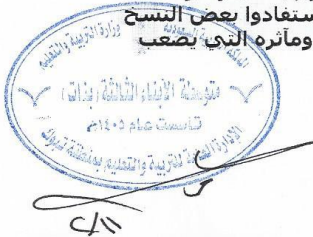 ستفادوا بعض النسخ
ومآثره التي يصعب
وزارة التربية والتعليم
متوسطة الأبناء الثالثة (بنات)
تأسست عام ١٤٠٥هـ
الإدارة العامة للتربية والتعليم بمنطقة تبوك